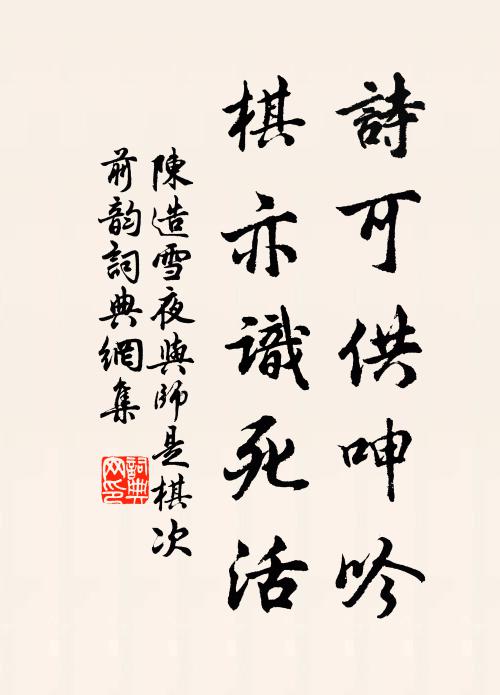 詩可供呻吟
棋亦識死活
陳造雪夜與師是棋次
前韵詞典網集
詞典网印